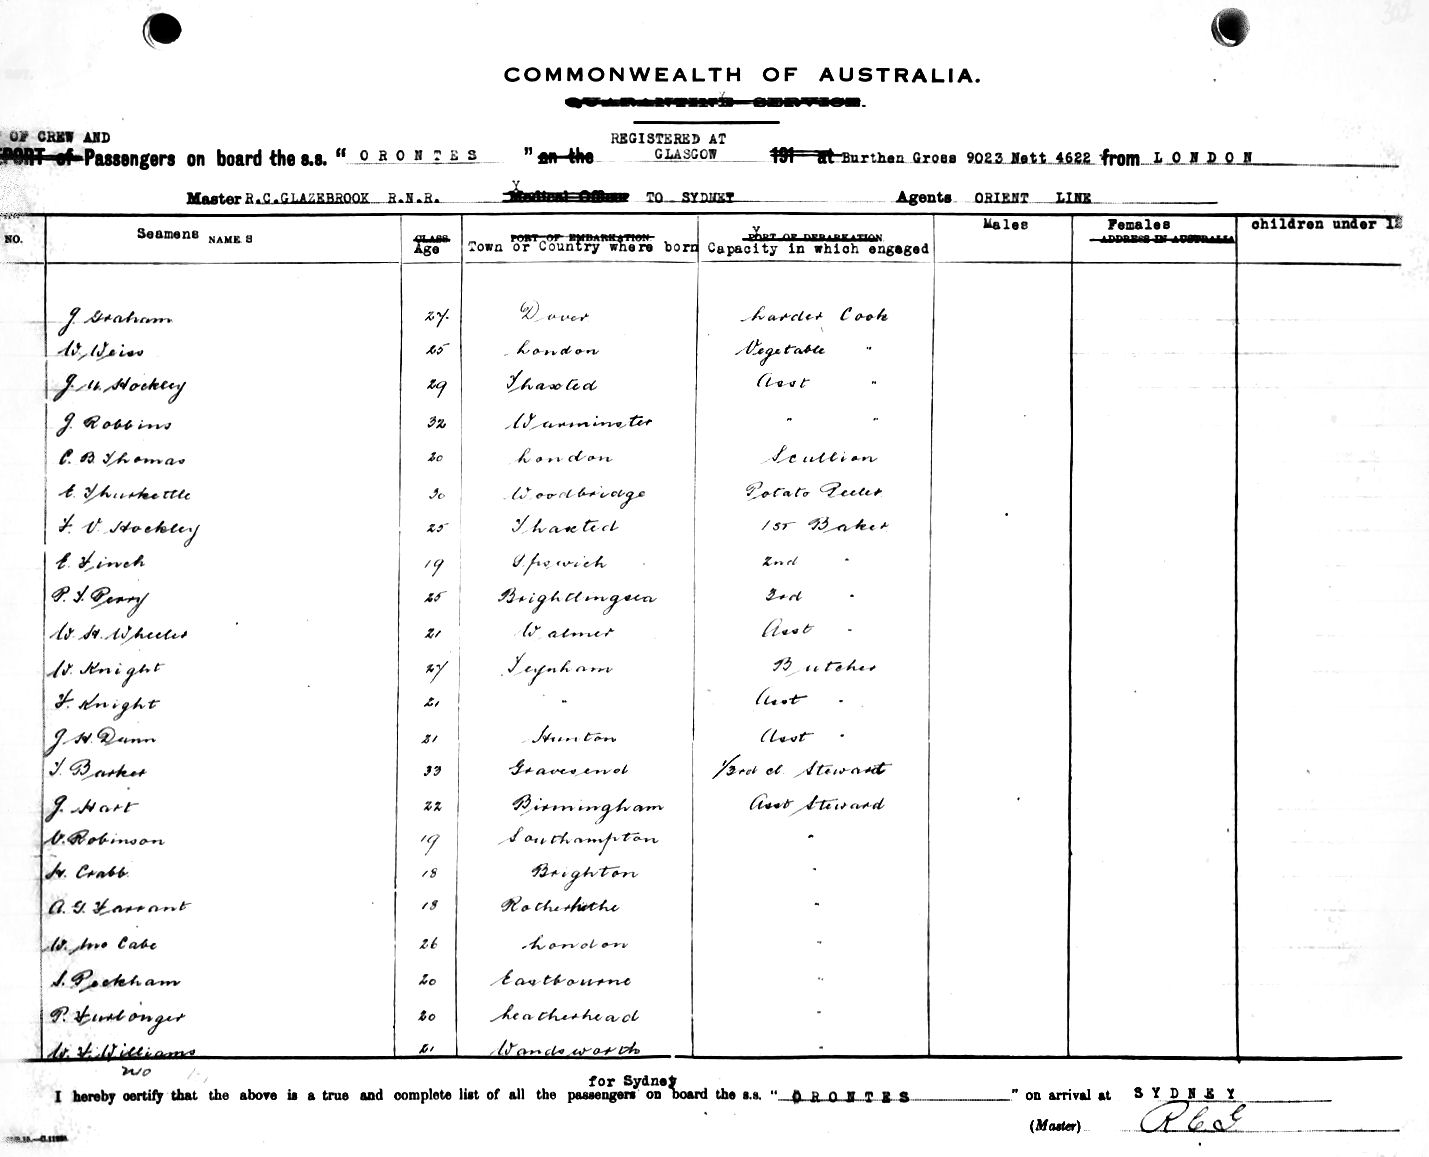 COMMONWEALTH OF AUSTRALIA.
QUARANTINE SERVICE.
OF CREW AND
REGISTERED AT
PORT of Passengers on board the s.s. " ORONTES " on the GLASGOW 191 at Burthen Gross 9023 Nett 4622 from LONDON
Master R.C.GLAZEBROOK R.N.R. Medical Officer TO SYDNEY Agents ORIENT LINE
NO. Seamens NAMES CLASS Age PORT OF EMBARKATION Town or Country where born PORT OF DEBARKATION Capacity in which engaged Males Females ADDRESS IN AUSTRALIA children under 12
J. Graham 27 Dover Larder Cook
W. Weiss 25 London Vegetable "
J. W. Hockley 29 Thaxted Asst "
J. Robbins 32 Warminster " "
C. B. Thomas 20 London Scullion
E. Thurkettle 30 Woodbridge Potato Peeler
F. V. Hockley 25 Thaxted 1st Baker
E. Finch 19 Ipswich 2nd "
P. F. Perry 25 Brightlingsea 3rd "
W. H. Wheeler 21 Walmer Asst "
W. Knight 27 Teynham Butcher
F. Knight 21 " Asst "
J. H. Dunn 21 Hunton Asst "
T. Barker 33 Gravesend 1/3rd cl. Steward
J. Hart 22 Birmingham Asst Steward
V. Robinson 19 Southampton "
H. Crabb 18 Brighton "
A. G. Farrant 18 Rotherhithe "
W. Mc Cabe 26 London "
S. Peckham 20 Eastbourne "
P. Furlonger 20 Leatherhead "
W. F. Williams 21 Wandsworth "
220
for Sydney
I hereby certify that the above is a true and complete list of all the passengers on board the s.s. " ORONTES " on arrival at SYDNEY
(Master) R C G